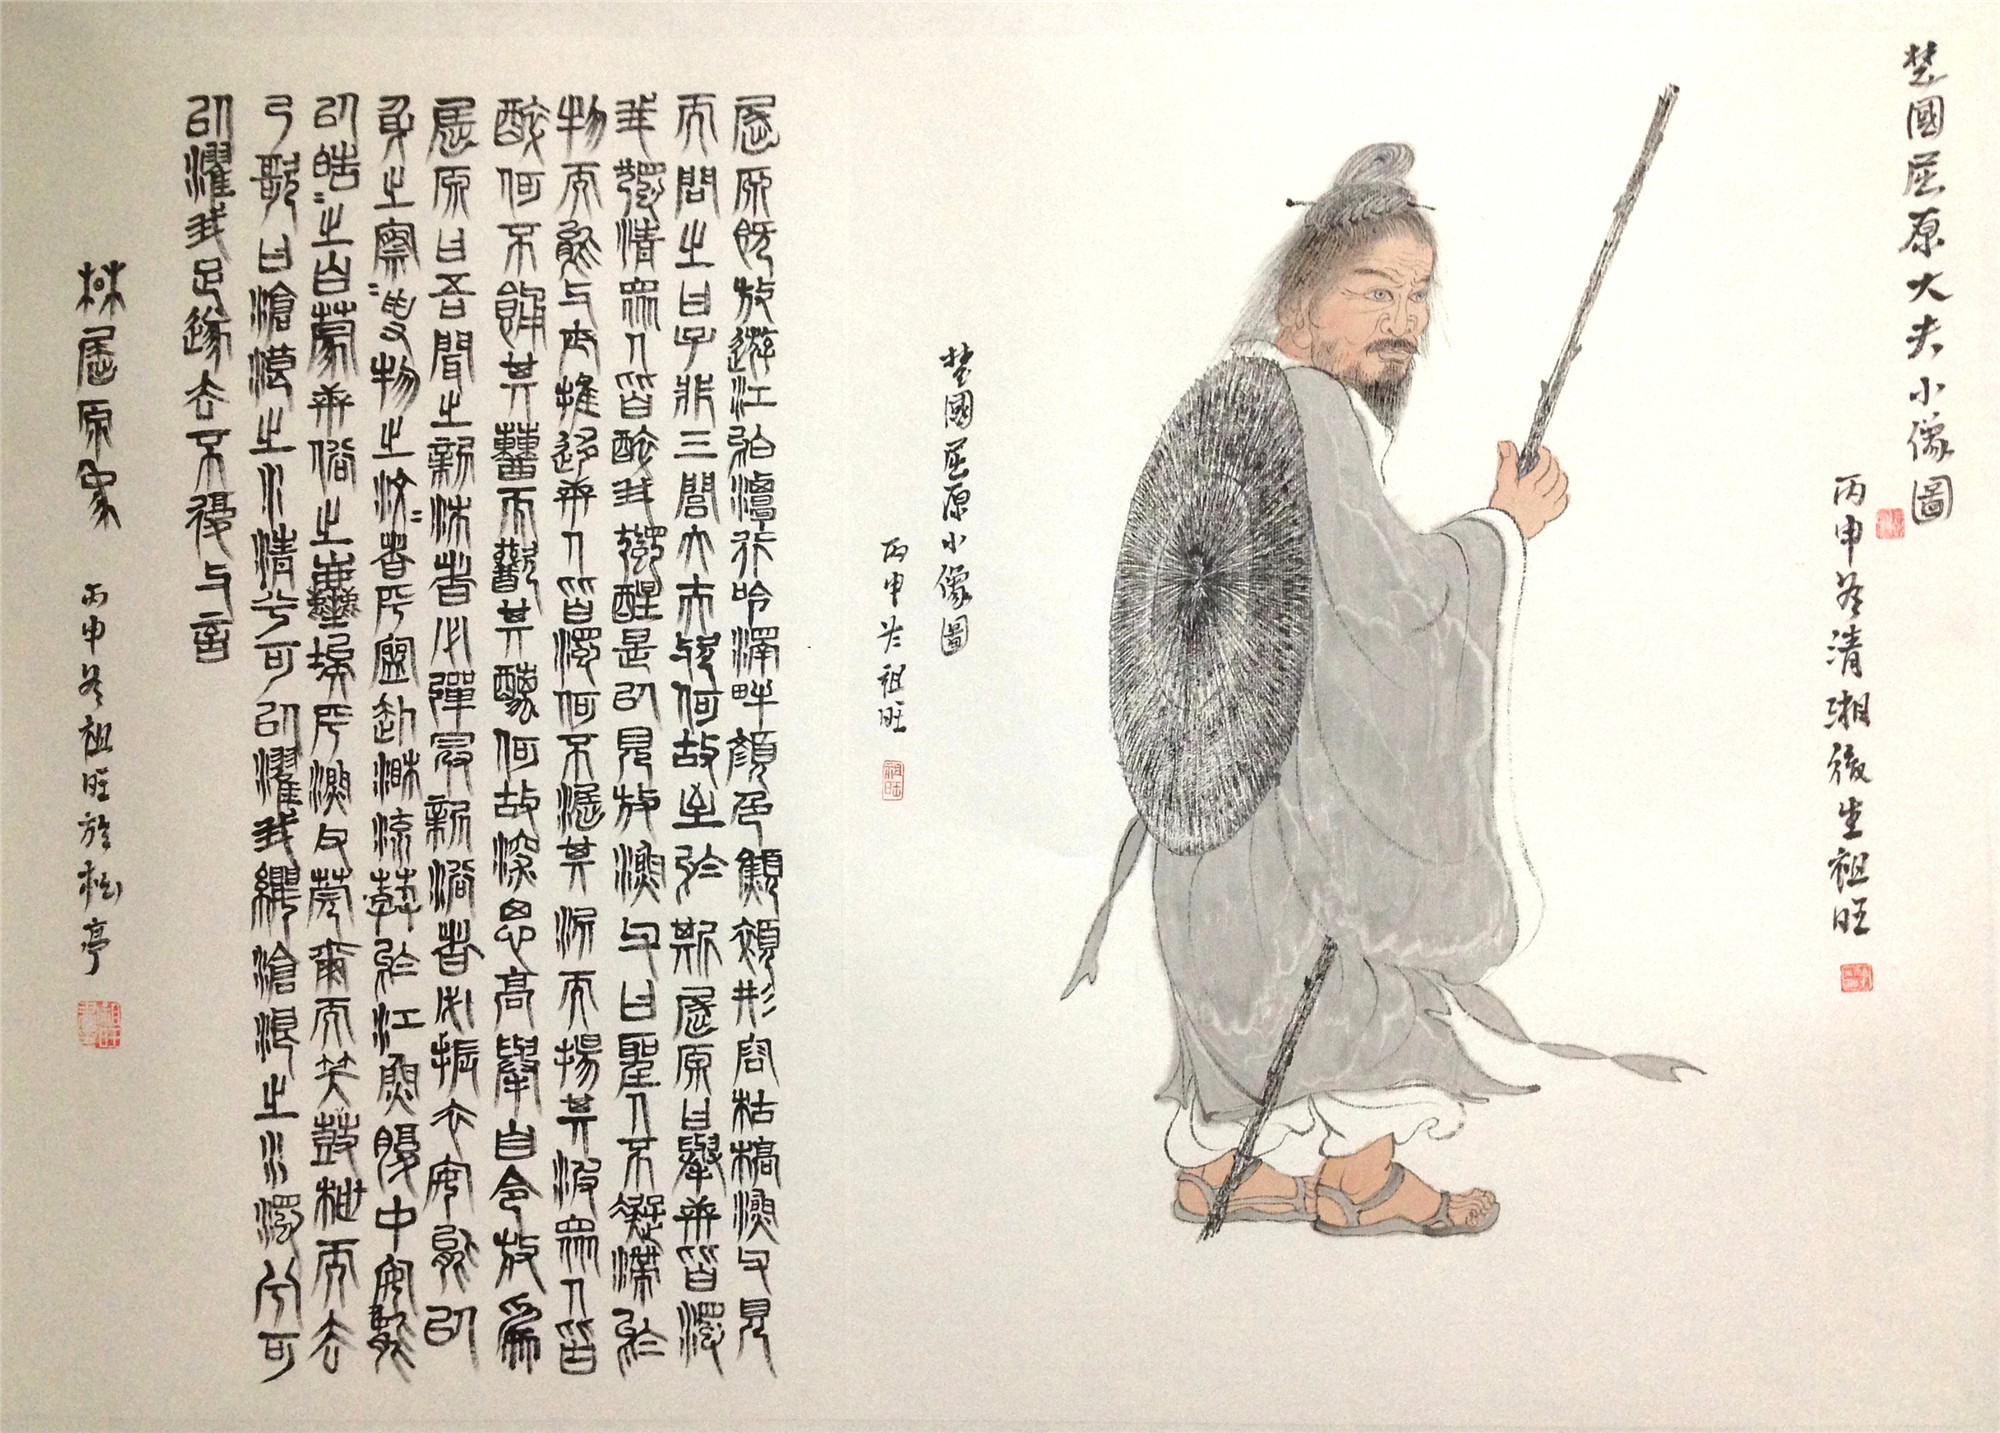 楚國屈原大夫小像圖
丙申冬清湘後生祖旺
楚國屈原小像圖
丙申冬祖旺
祖旺
屈原既放遊江泊潭行吟澤畔顏色顦顇形容枯槁漁父見
而問之曰子非三閭大夫與何故至於斯屈原曰舉世皆濁
我獨清眾人皆醉我獨醒是以見放漁父曰聖人不凝滯於
物而能与世推移世人皆濁何不淈其泥而揚其波眾人皆
醉何不餔其糟而歠其醨何故深思高舉自令放為
屈原曰吾聞之新沐者必彈冠新浴者必振衣安能以
身之察察受物之汶汶者乎寧赴湘流葬於江魚腹中安能
以皓皓之白蒙世俗之塵埃乎漁父莞爾而笑鼓枻而去
乃歌曰滄浪之水清兮可以濯我纓滄浪之水濁兮可
以濯我足遂去不復与言
楚屈原象 丙申冬祖旺於松亭